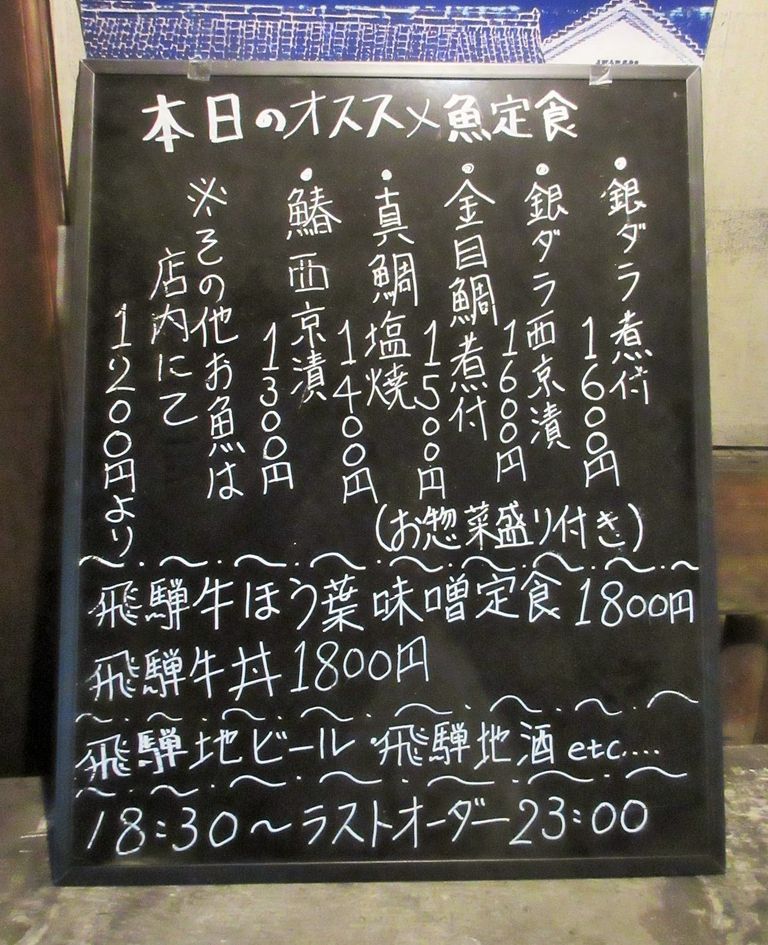 本日のオススメ魚定食
・銀ダラ煮付
1600円
・銀ダラ西京漬
1600円
・金目鯛煮付
1500円
・真鯛塩焼
1400円
・鰆西京漬
1300円
※その他お魚は
店内にて
1200円より
(お惣菜盛り付き)
飛騨牛ほう葉味噌定食1800円
飛騨牛丼1800円
飛騨地ビール・飛騨地酒etc....
18:30〜ラストオーダー23:00